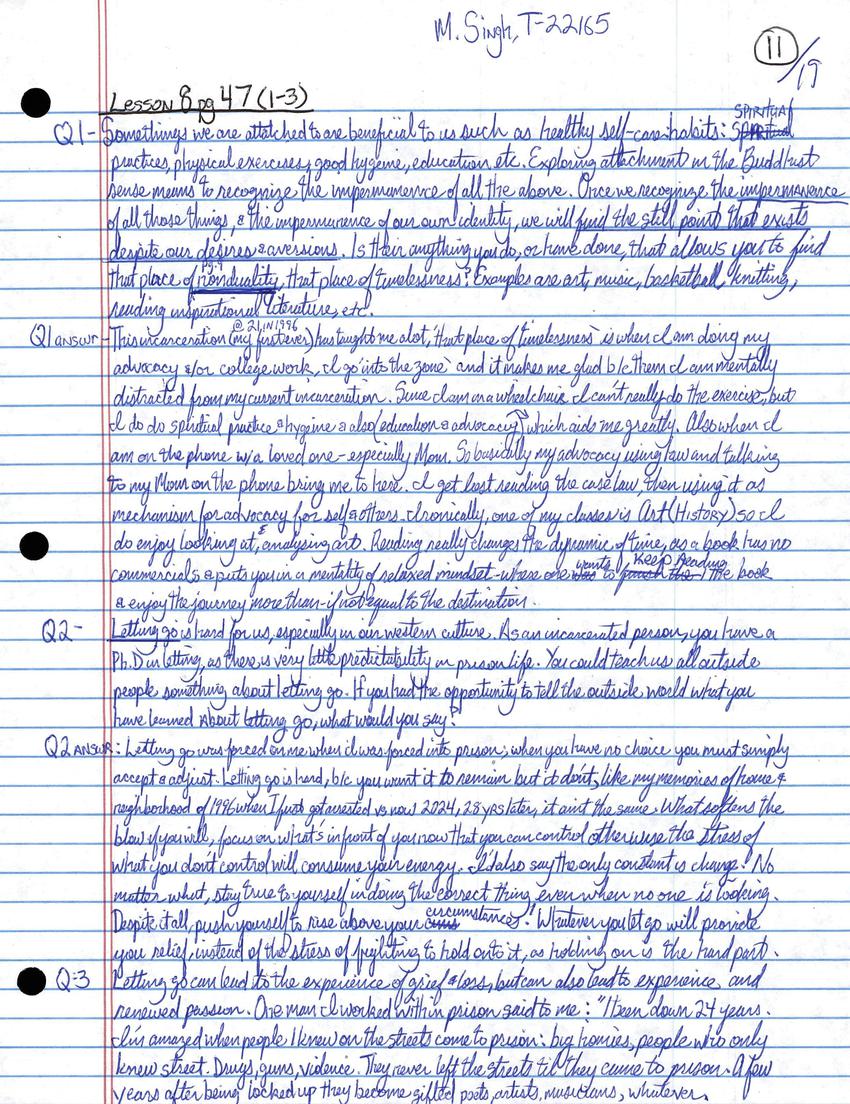 M. Singh, T-22165
11/19
Lesson 8 pg 47 (1-3)
SPIRITUAL
Q1- Somethings we are attatched to are beneficial to us such as healthy self-care habits:
practices, physical exercises, good hygiene, education, etc. Exploring attachment in the Buddhist
sense means to recognize the impermanence of all the above. Once we recognize the impermanence
of all those things, & the impermanence of our own identity, we will find the still point that exists
despite our desires & aversions. Is their anything you do, or have done, that allows you to find
pg.9
that place of nonduality, that place of timelessness? Examples are art, music, basketball, knitting,
reading inspirational literature, etc.
@ 21 in 1996
Q1 answr- This incarceration (my first ever) has taught me alot, 'that place of timelessness' is when I am doing my
advocacy &/or college work, I go 'into the zone' and it makes me glad b/c then I am mentally
distracted from my current incarceration. Since I am on a wheelchair I can't really do the exercise, but
I do do spiritual practice & hygiene & also (education & advocacy) which aids me greatly. Also when I
am on the phone w/a loved one - especially Mom. So basically my advocacy using law and talking
to my Mom on the phone bring me to here. I get lost reading the case law, then using it as
mechanism for advocacy for self & others. Ironically, one of my classes is Art (History) so I
do enjoy looking at, & analysing art. Reading really changes the dynamic of time, as a book has no
wants Keep Reading
commercials & puts you in a mentality of relaxed mindset - where one to the book
& enjoy the journey more than - if not equal to the destination.
Q2- Letting go is hard for us, especially in our western culture. As an incarcerated person, you have a
Ph.D in letting, as there is very little predictability in prison life. You could teach us all outside
people something about letting go. If you had the opportunity to tell the outside world what you
have learned About letting go, what would you say?
Q2 ANSWR: Letting go was forced on me when I was forced into prison; when you have no choice you must simply
accept & adjust. Letting go is hard, b/c you want it to remain but it don't, like my memories of house &
neighborhood of 1996 when I just got arrested vs now 2024, 28 yrs later, it aint the same. What softens the
blow if you will, focus on what's in front of you now that you can control otherwise the stress of
what you don't control will consume your energy. I'd also say the only constant is change! No
matter what, stay true to yourself in doing the correct thing even when no one is looking.
Despite it all, push yourself to rise above your circumstances! Whatever you let go will provide
you relief, instead of the stress of fighting to hold onto it, as holding on is the hard part.
Q:3 Letting go can lead to the experience of grief & loss, but can also lead to experience and
renewed passion. One man I worked with in prison said to me: "I been down 24 years.
I'm amazed when people I knew on the streets come to prison: big homies, people who only
knew street. Drugs, guns, violence. They never left the streets til they came to prison. A few
years after being locked up they become gifted poets, artists, musicians, whatever.